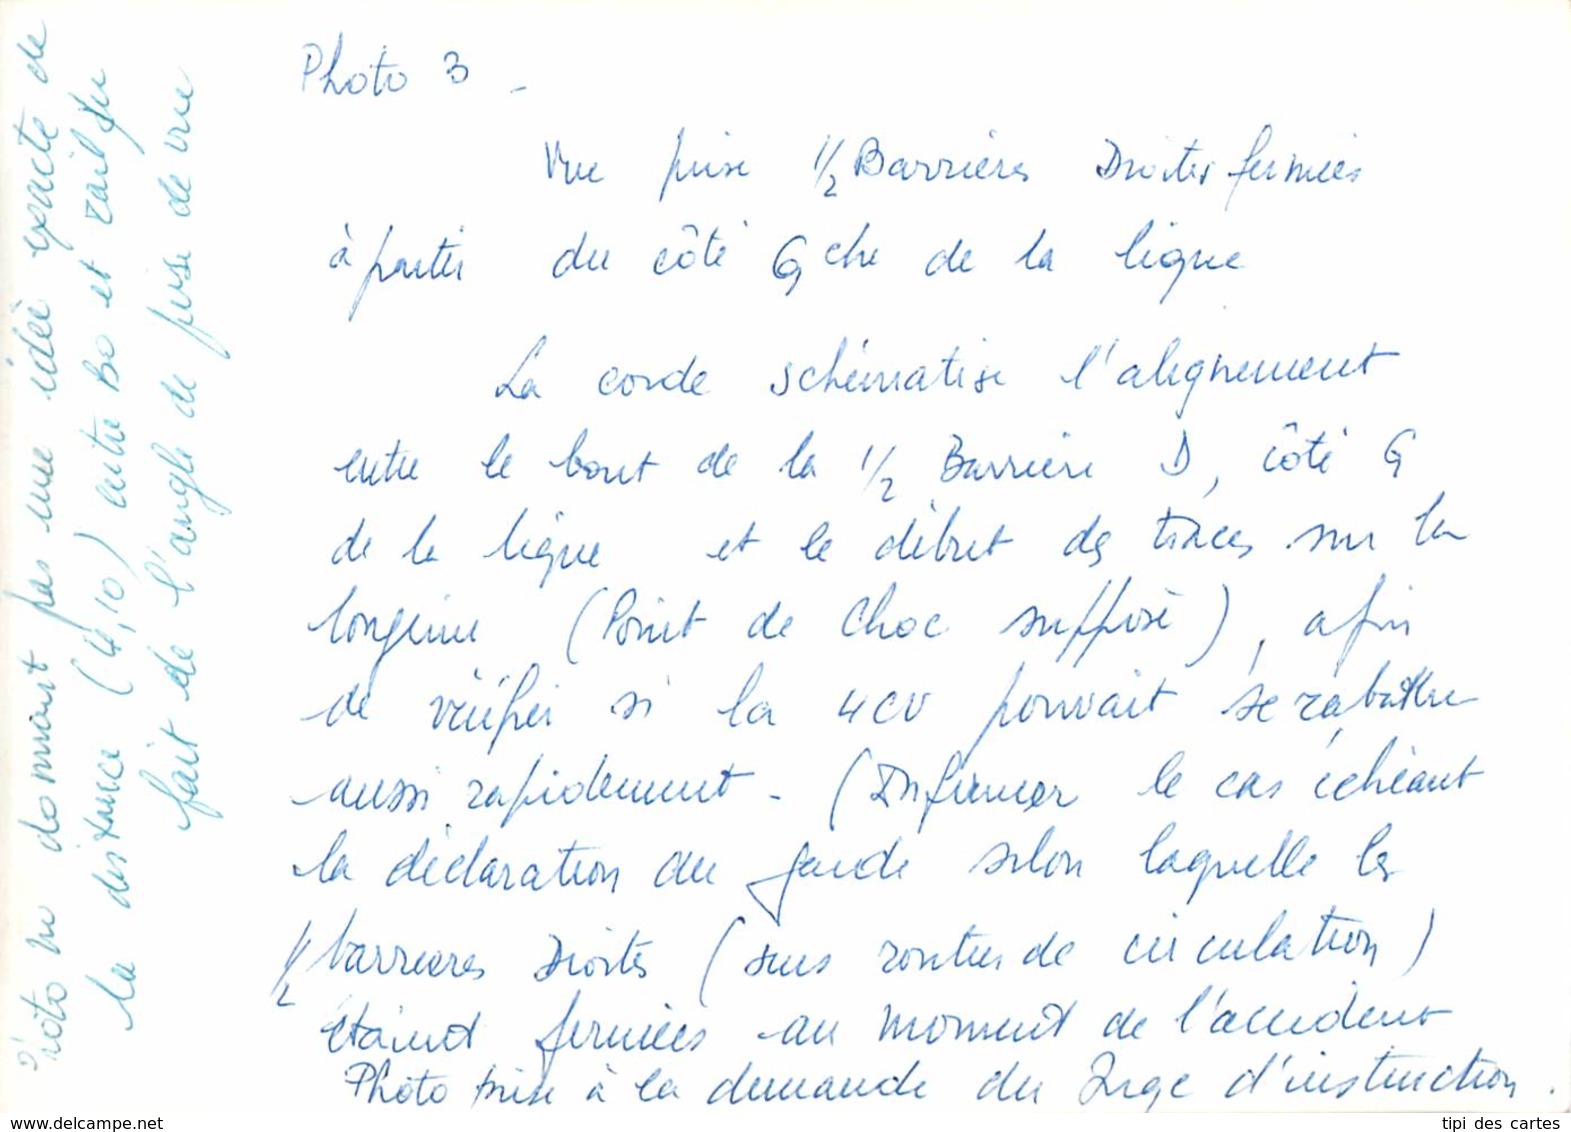 Photo 3 -
Vue prise 1/2 Barrières Droites fermées
à partir du côté Gche de la ligne
La corde schématise l'alignement
entre le bout de la 1/2 Barrière D, côté G
de la ligne et le début des traces sur la
longrine (Point de Choc supposé), afin
de vérifier si la 4CV pouvait se rabattre
aussi rapidement - (Infirmer le cas échéant
la déclaration du garde selon laquelle les
1/2 barrières Droites (sens routier de circulation)
étaient fermées au moment de l'accident
Photo prise à la demande du Juge d'instruction.
Photo ne donnant pas une idée exacte de
la distance (4,10) entre Bo et rail du
fait de l'angle de prise de vue
tipi des cartes
www.delcampe.net